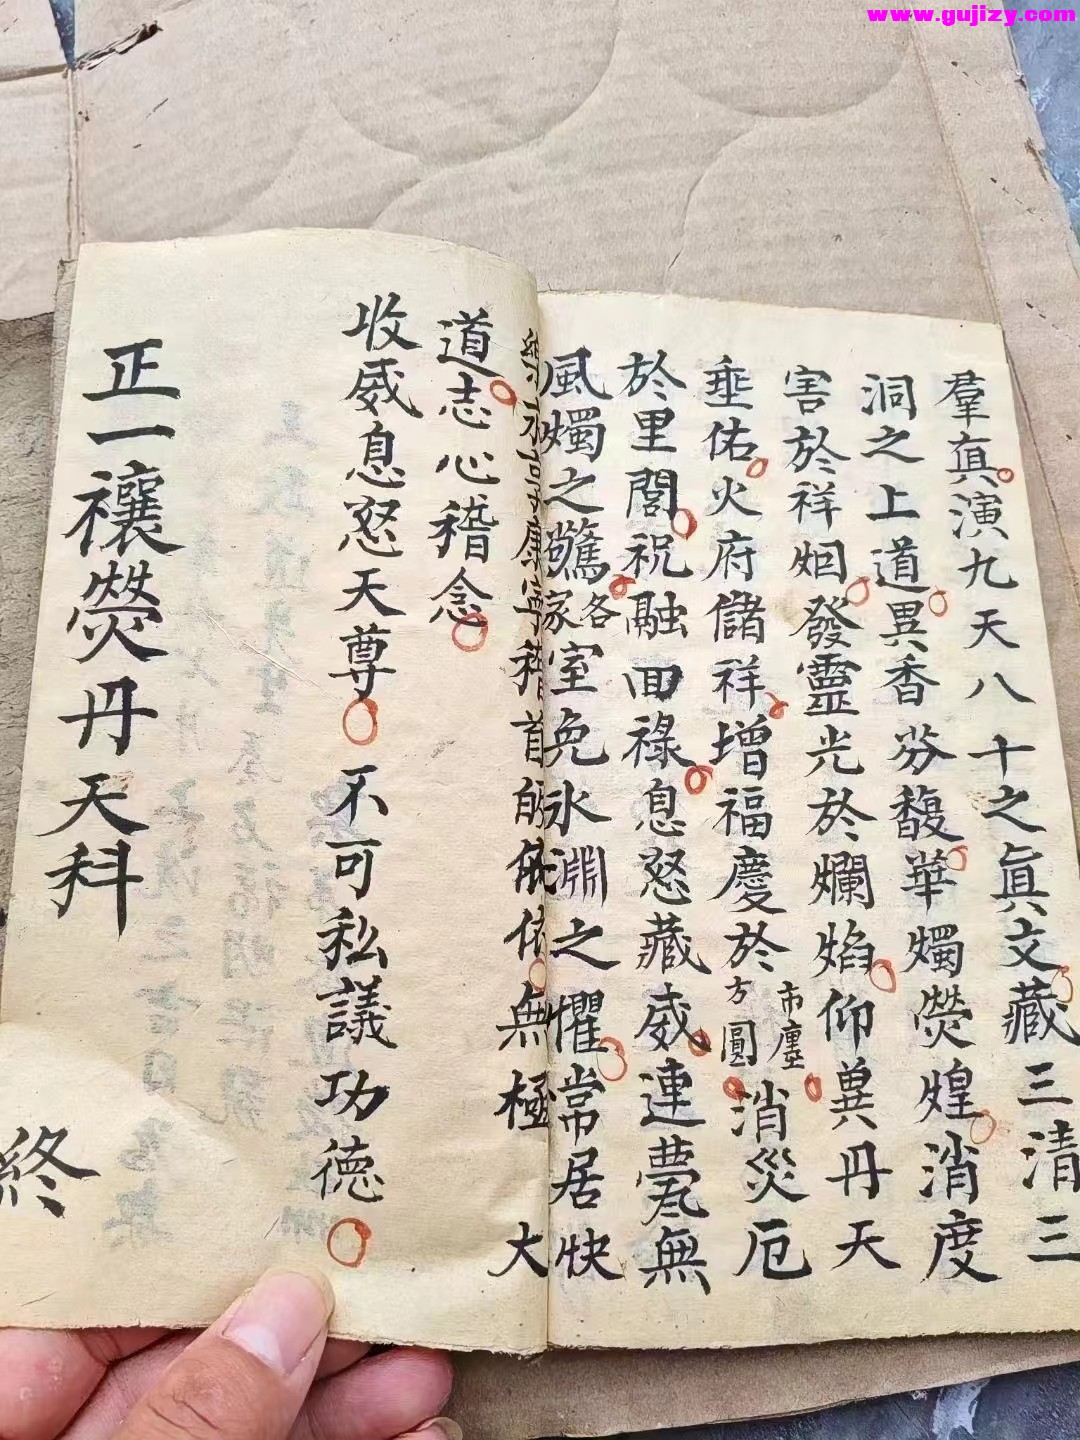 www.gujizy.com
羣真演九天八十之真文藏三清三
洞之上道異香芬馥華燭熒煌消度
害於祥烟發靈光於爛焰仰冀丹天
垂佑火府儲祥增福慶於方圓市廛消災厄
於里閭祝融回祿息怒藏威連甍無
風燭之驚家各室免氷淵之懼常居快
永享康寧稽首皈依依無極大
道志心稽念
收威息怒天尊不可私議功德
正一禳熒丹天科
終